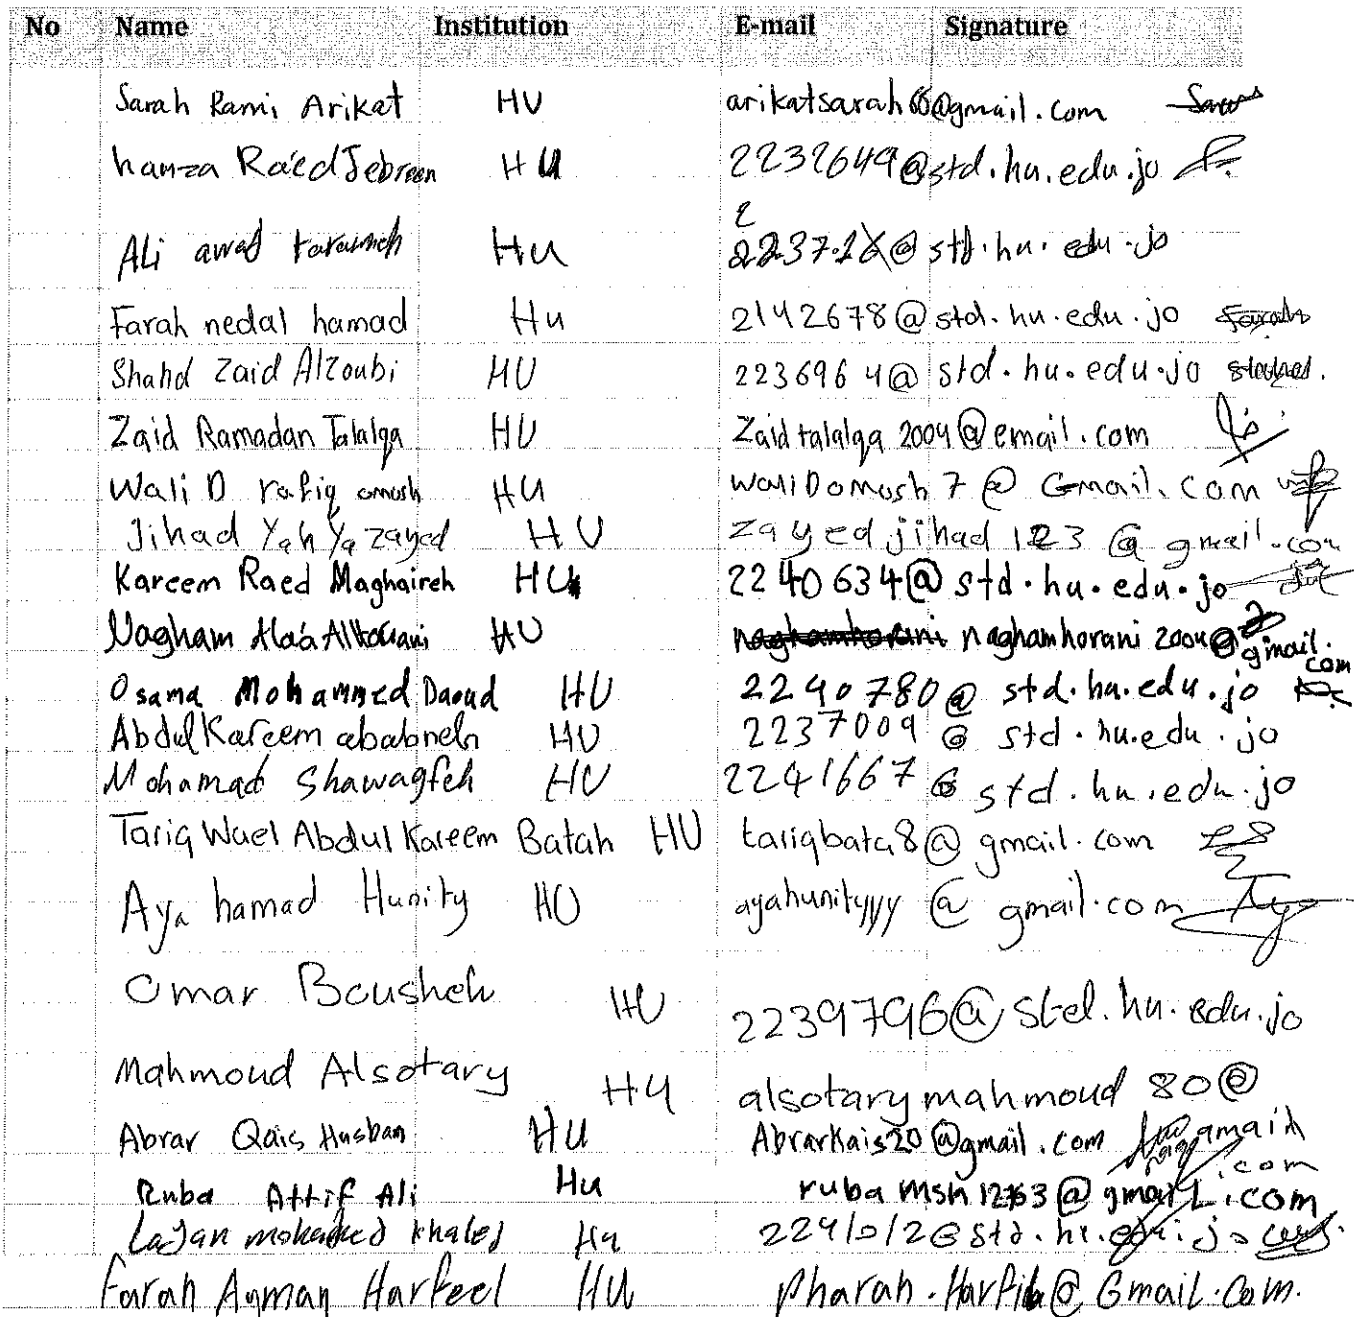 No Name Institution E-mail Signature
Sarah Rami Arikat HU arikatsarah @gmail.com
hamza Ra'ed Jebreen HU 2232649@std.hu.edu.jo
Ali awad HU @std.hu.edu.jo
Farah nedal hamad Hu 2142678@std.hu.edu.jo Farah
Shahd Zaid Alzoubi HU 2236964@std.hu.edu.jo
Zaid Ramadan Talalqa HU Zaidtalalqa2004@email.com
WaliD rafiq omosh HU WaliDomosh7@Gmail.com
Jihad Yahya zayed HU zayedjihad123@gmail.com
Kareem Raed Maghaireh HU 2240634@std.hu.edu.jo
Nagham Alaa Alhorani HU naghamhorani naghamhorani2004@gmail.com
Osama Mohammed Daoud HU 2240780@std.hu.edu.jo
AbdulKareem ababneh HU 2237009@std.hu.edu.jo
Mohamad Shawaqfeh HU 2241667@std.hu.edu.jo
Tariq Wael Abdul Kareem Batah HU tariqbata8@gmail.com
Aya hamad Hunity HU ayahunityyy@gmail.com Aya
Omar Bousheh HU 2239796@std.hu.edu.jo
Mahmoud Alsotary HU alsotarymahmoud80@gmail.com
Abrar Qais Husban HU AbrarKais20@gmail.com
Ruba Attif Ali Hu ruba @gmail.com
Layan khaled Hu 2241012@std.hu.edu.jo
Farah Ayman Harfeel HU @Gmail.Com.